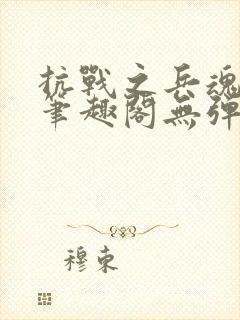 抗戰之兵魂
筆趣閣無彈
穆東